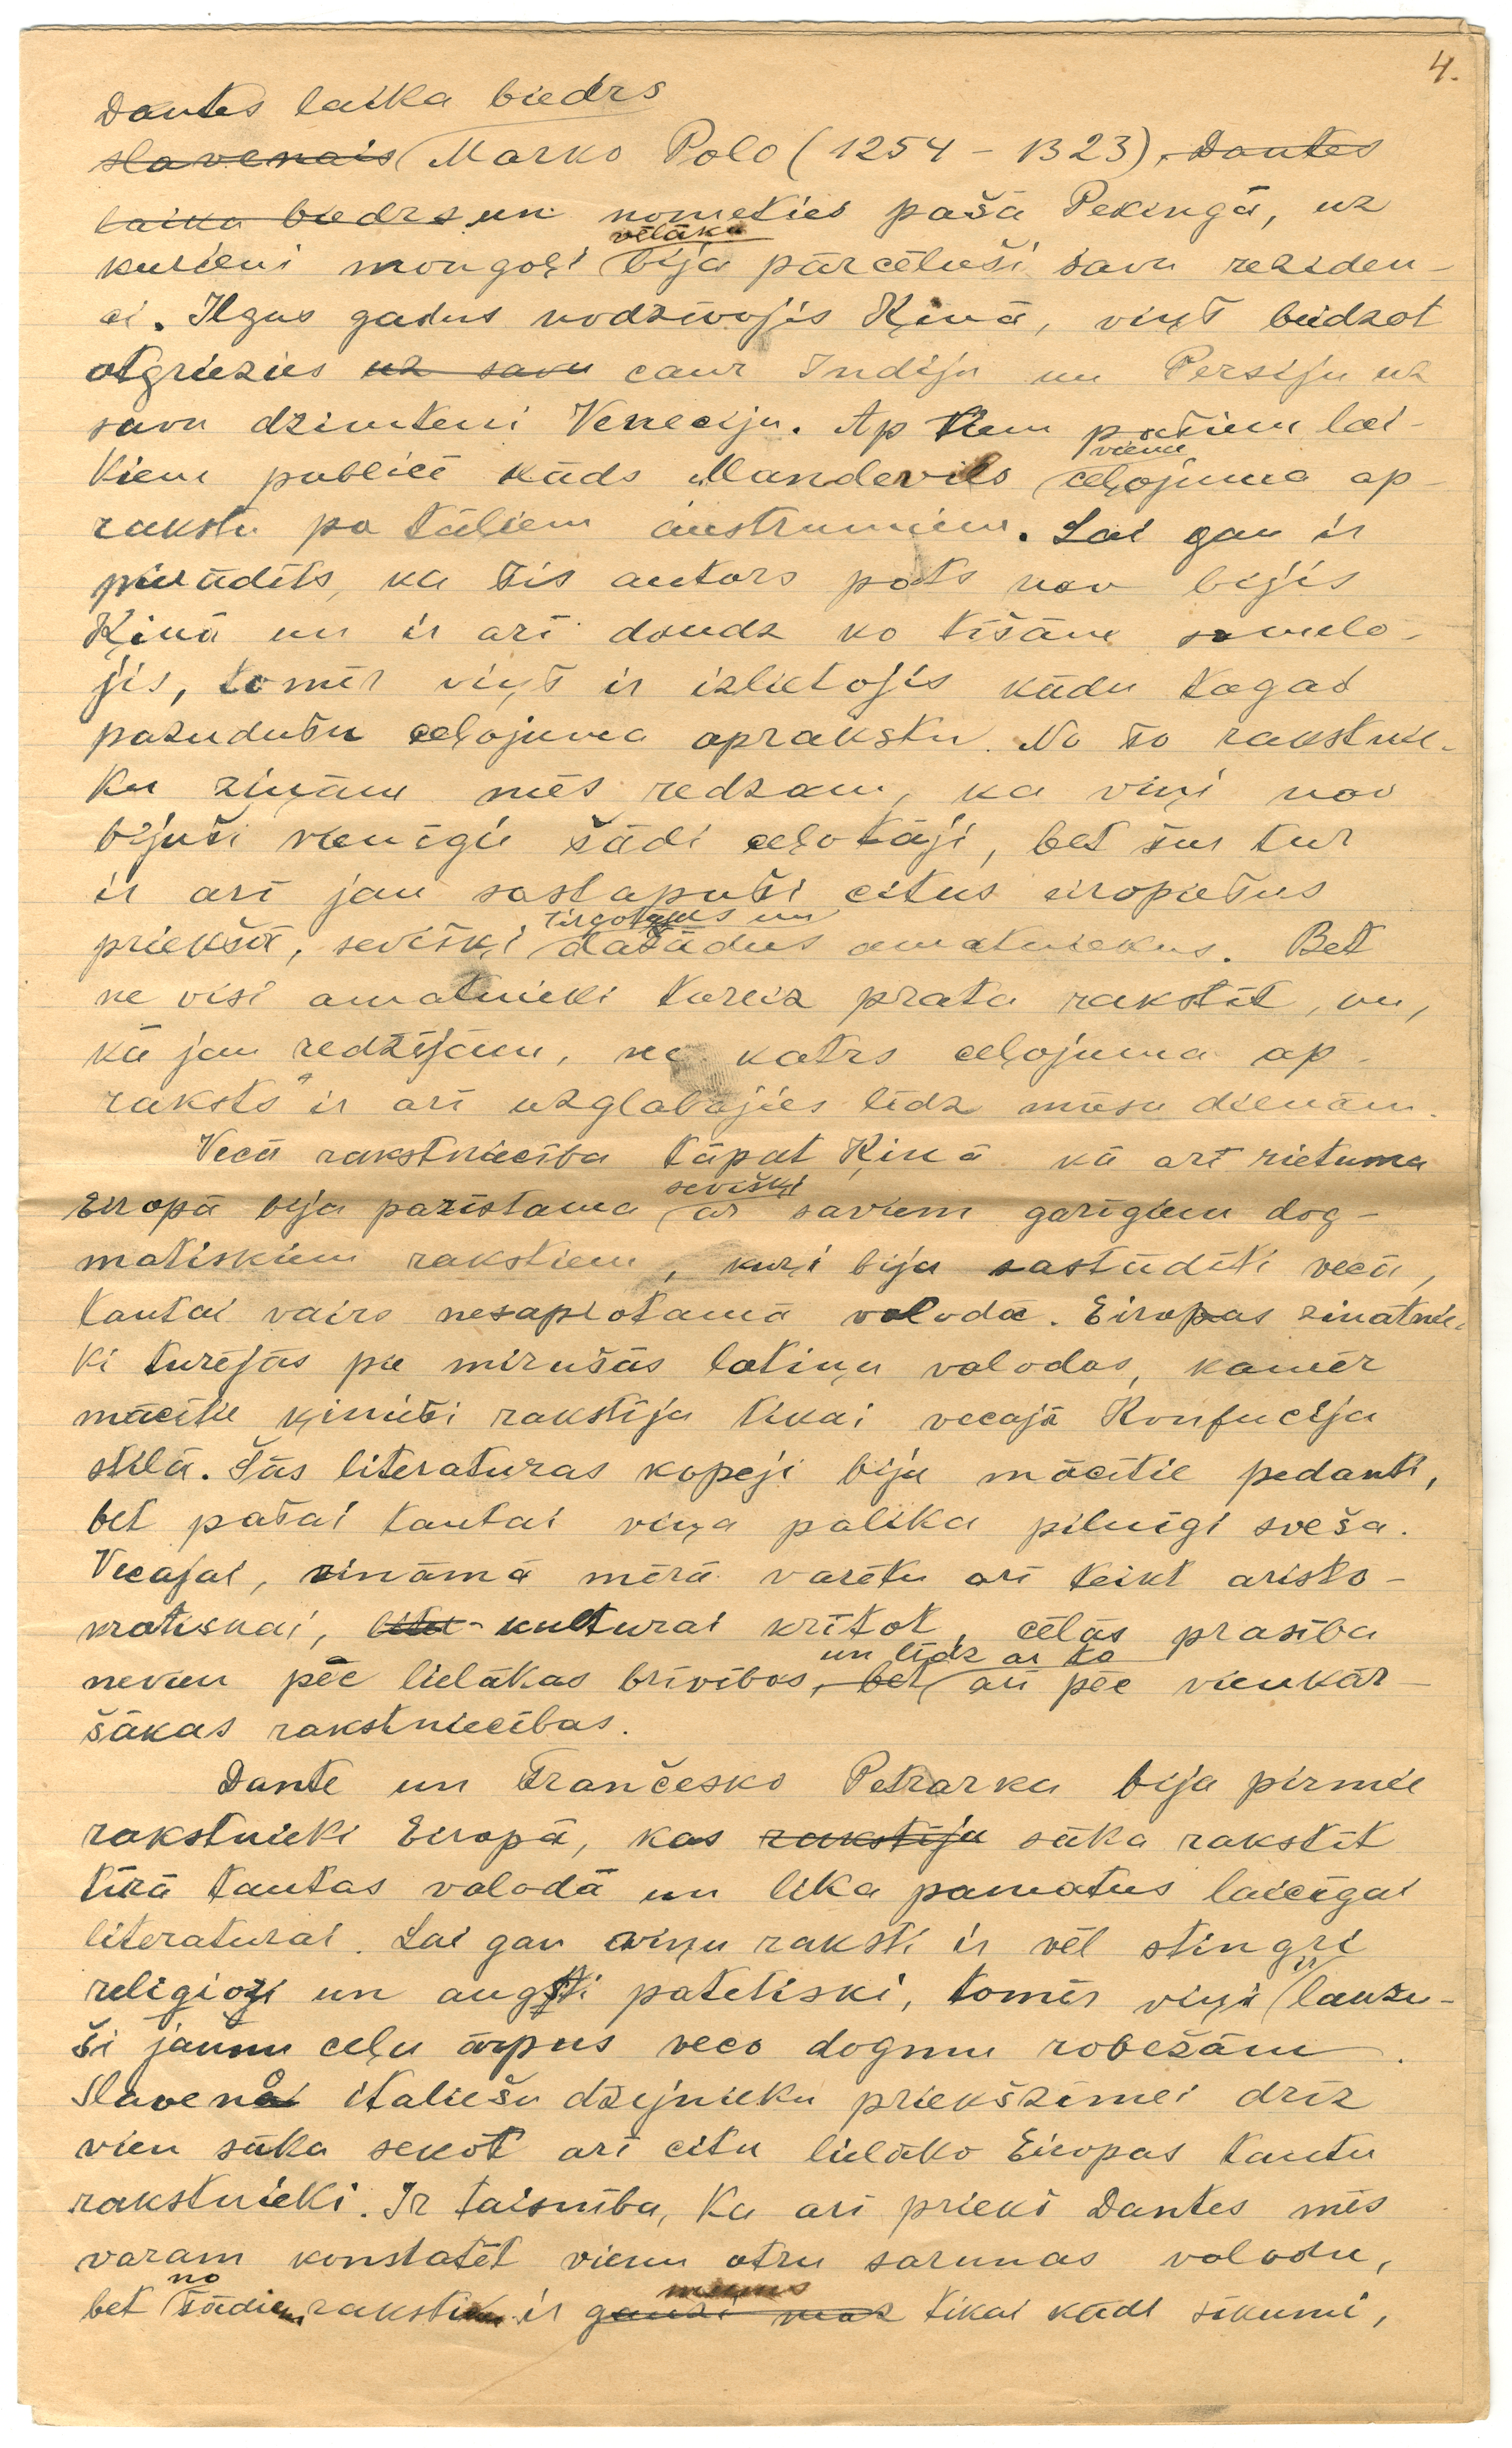 4.
Dantes laika biedrs
slavenais Marko Polo (1254 – 1323), Dantes
laika biedrs un nometies pašā Pekingā, uz
vēlāku
kurieni mongoļi bija pārcēluši savu reziden-
ci. Ilgus gadus nodzīvojis Ķinā, viņš beidzot
atgriezies uz savu caur Indiju un Persiju uz
savu dzimteni Veneciju. Ap tiem pašiem lai-
vienu
kiem publicē kāds Mandevils ceļojuma ap-
rakstu pa tāliem austrumiem. Lai gan ir
pierādīts, ka šis autors pats nav bijis
Ķinā un ir arī daudz ko tīšām samelo-
jis, tomēr viņš ir izlietojis kādu tagad
pazudušu ceļojuma aprakstu. No šo rakstnie-
ku ziņām mēs redzam, ka viņi nav
bijuši vienīgie šādi ceļotāji, bet šur tur
ir arī jau sastapuši citus eiropiešus
tirgotājus un
priekšā, sevišķi dažādus amatniekus. Bet
ne visi amatnieki toreiz prata rakstīt, un,
kā jau redzējām, ne katrs ceļojuma ap-
raksts ir arī uzglabājies līdz mūsu dienām.
Vecā rakstniecība tāpat Ķinā kā arī rietuma
sevišķi
Eiropā bija pazīstama ar saviem garīgiem dog-
matiskiem rakstiem, kuŗi bija sastādīti vecā,
tautai vairs nesaprotamā valodā. Eiropas zinātnie-
ki turējās pie mirušās latiņu valodas, kamēr
mācītie ķinieši rakstīja tikai vecajā Konfucija
stilā. Šās literaturas kopēji bija mācītie pedanti,
bet pašai tautai viņa palika pilnīgi sveša.
Vecajai, zināmā mērā varētu arī teikt aristo-
kratiskai, lite- kulturai krītot, cēlās prasība
un līdz ar to
nevien pēc lielākas brīvības, bet arī pēc vienkār-
šākas rakstniecības.
Dante un Frančesko Petrarka bija pirmie
rakstnieki Eiropā, kas rakstīja sāka rakstīt
tīrā tautas valodā un lika pamatus laicīgai
literaturai. Lai gan viņu raksti ir vēl stingri
ir
religiozi un augsti patetiski, tomēr viņi lauzu-
ši jaunu ceļu ārpus veco dogmu robežām.
Slaveno italiešu dzejnieku priekšzīmei drīz
vien sāka sekot arī citu lielāko Eiropas tautu
rakstnieki. Ir taisnība, ka arī prieks Dantes mēs
varam konstatēt vienu otru sarunas valodu,
no mums
bet šādiem rakstiem ir gauži maz tikai kādi sīkumi,